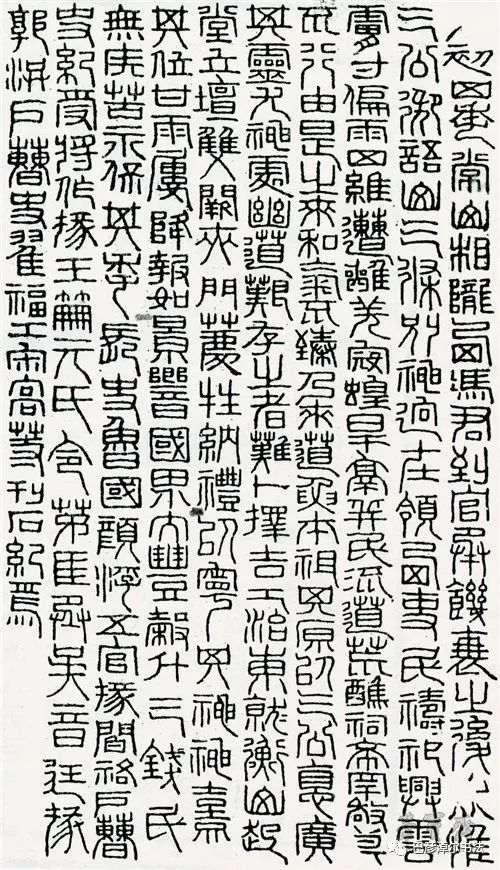 初四年常山相隴西馮君到官承饑衰之後惟
三公御語山三條別神迥在領西吏民禱祀興雲
膚寸偏雨四維遭離羌寇蝗旱鬲并民流道荒醮祠希罕敬奠
不行由是之來和氣不臻乃來道要本祖其原以三公德廣
其靈尤神處幽道艱存之者難卜擇吉工治東就衡山起
堂立壇雙闕夾門薦牲納禮以寧其神神熹
其位甘雨屢降報如景響國界大豐穀斗三錢民
無疾苦永保其年長史魯國顏浮五官掾閻祐戶曹
史紀受將作掾王籌元氏令茅匡丞吳音廷掾
郭洪戶曹史翟福工宋高等刊石紀焉
巴彦淖尔书法